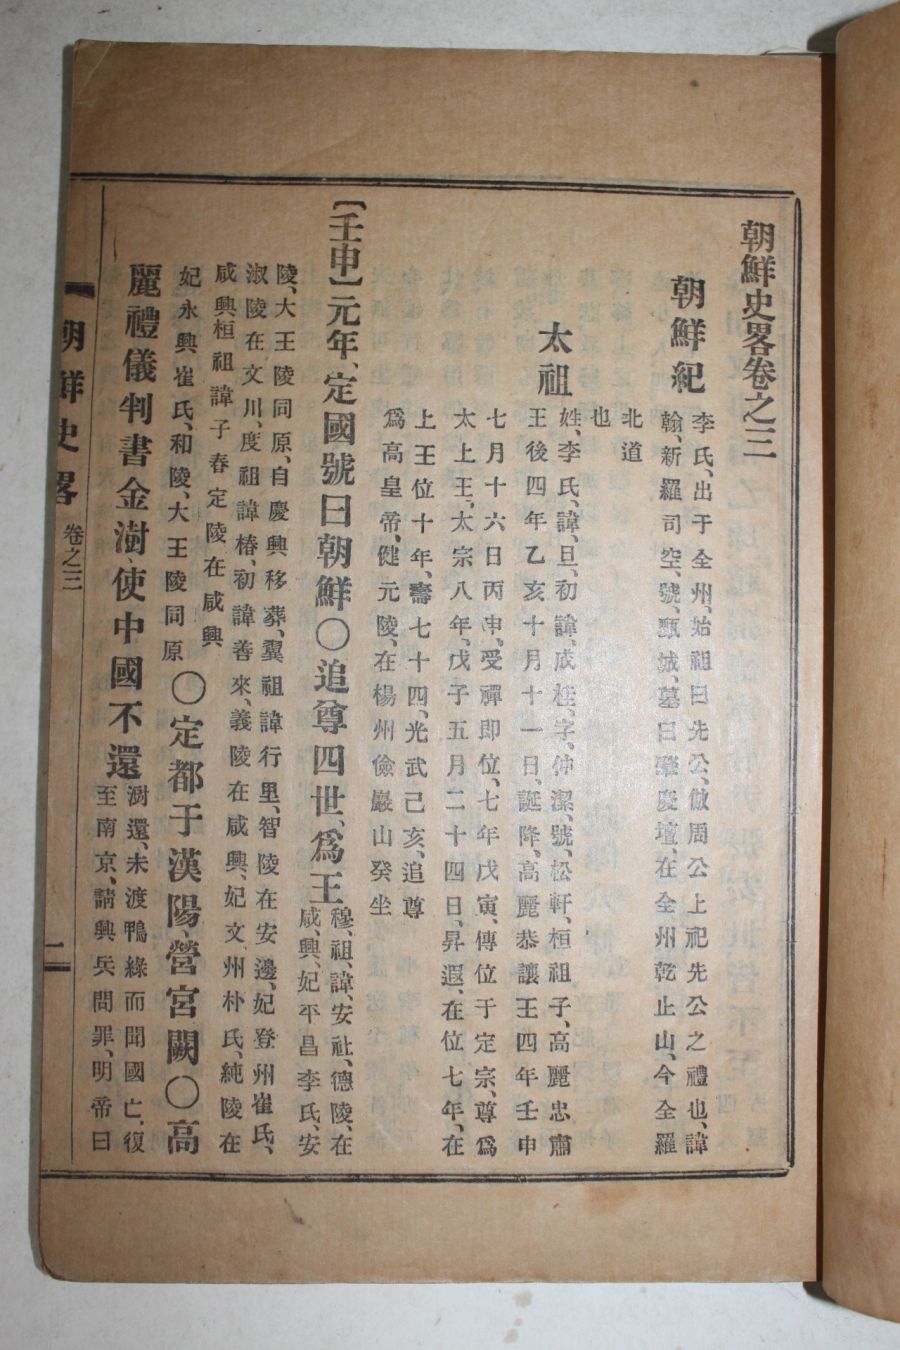 朝鮮史畧卷之三
朝鮮紀
李氏、出于全州、始祖曰先公、倣周公上祀先公之禮也、諱
翰、新羅司空、號、甄城、墓曰肇慶壇、在全州乾止山、今全羅
北道
也
太祖
姓、李氏、諱、旦、初諱、成桂、字、仲潔、號、松軒、桓祖子、高麗忠肅
王後四年乙亥十月十一日、誕降、高麗恭讓王四年壬申
七月十六日丙申、受禪卽位、七年戊寅、傳位于定宗、尊爲
太上王、太宗八年、戊子五月二十四日、昇遐、在位七年、在
上王位十年、壽七十四、光武己亥、追尊
爲高皇帝、健元陵、在楊州儉巖山癸坐
【壬申】元年、定國號曰朝鮮〇追尊四世、爲王
穆、祖、諱、安社、德陵、在
咸、興、妃平昌李氏、安
陵、大王陵同原、自慶興移葬、翼祖諱行里、智陵在安邊、妃登州崔氏、
淑陵在文川、度祖諱椿、初諱善來、義陵在咸興、妃文、州朴氏、純陵在
咸興桓祖諱子春定陵在咸興
妃永興崔氏、和陵、大王陵同原
〇定都于漢陽、營宮闕〇高
麗禮儀判書金澍、使中國不還
澍還、未渡鴨綠而聞國亡、復
至南京、請興兵問罪、明帝曰
朝鮮史畧 卷之三
一